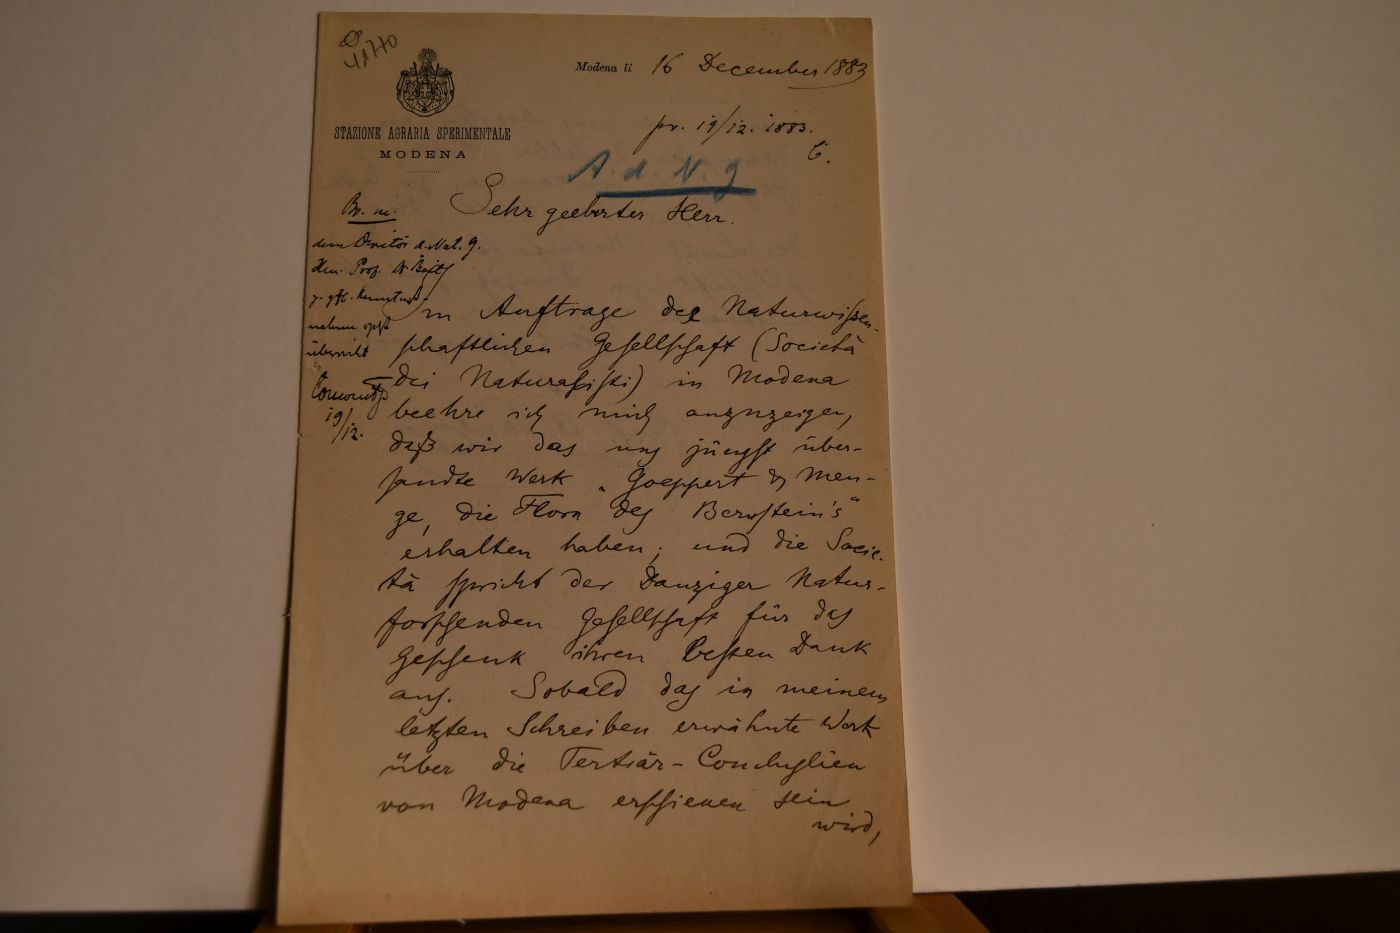 41770
STAZIONE AGRARIA SPERIMENTALE
MODENA
Modena li 16 December 1883
pr. 19/12. 1883.
C.
A. d. N. G
Sehr geehrter Herr.
Br. m.
dem Director d. Nat. G.
Hrn. Prof.
nebum
überreicht
19/12.
im Auftrage der Naturwissen-
schaftlichen Gesellschaft (Società
dei Naturalisti) in Modena
beehre ich mich anzuzeigen,
daß wir das uns jüngst über-
sandte Werk „Goeppert & Men-
ge, die Flora des Bernstein's“
erhalten haben; und die Socie-
tà spricht der Danziger Natur-
forschenden Gesellschaft für das
Geschenk ihren besten Dank
aus. Sobald das in meinem
letzten Schreiben erwähnte Werk
über die Tertiär-Conchylien
von Modena erschienen sein
wird,